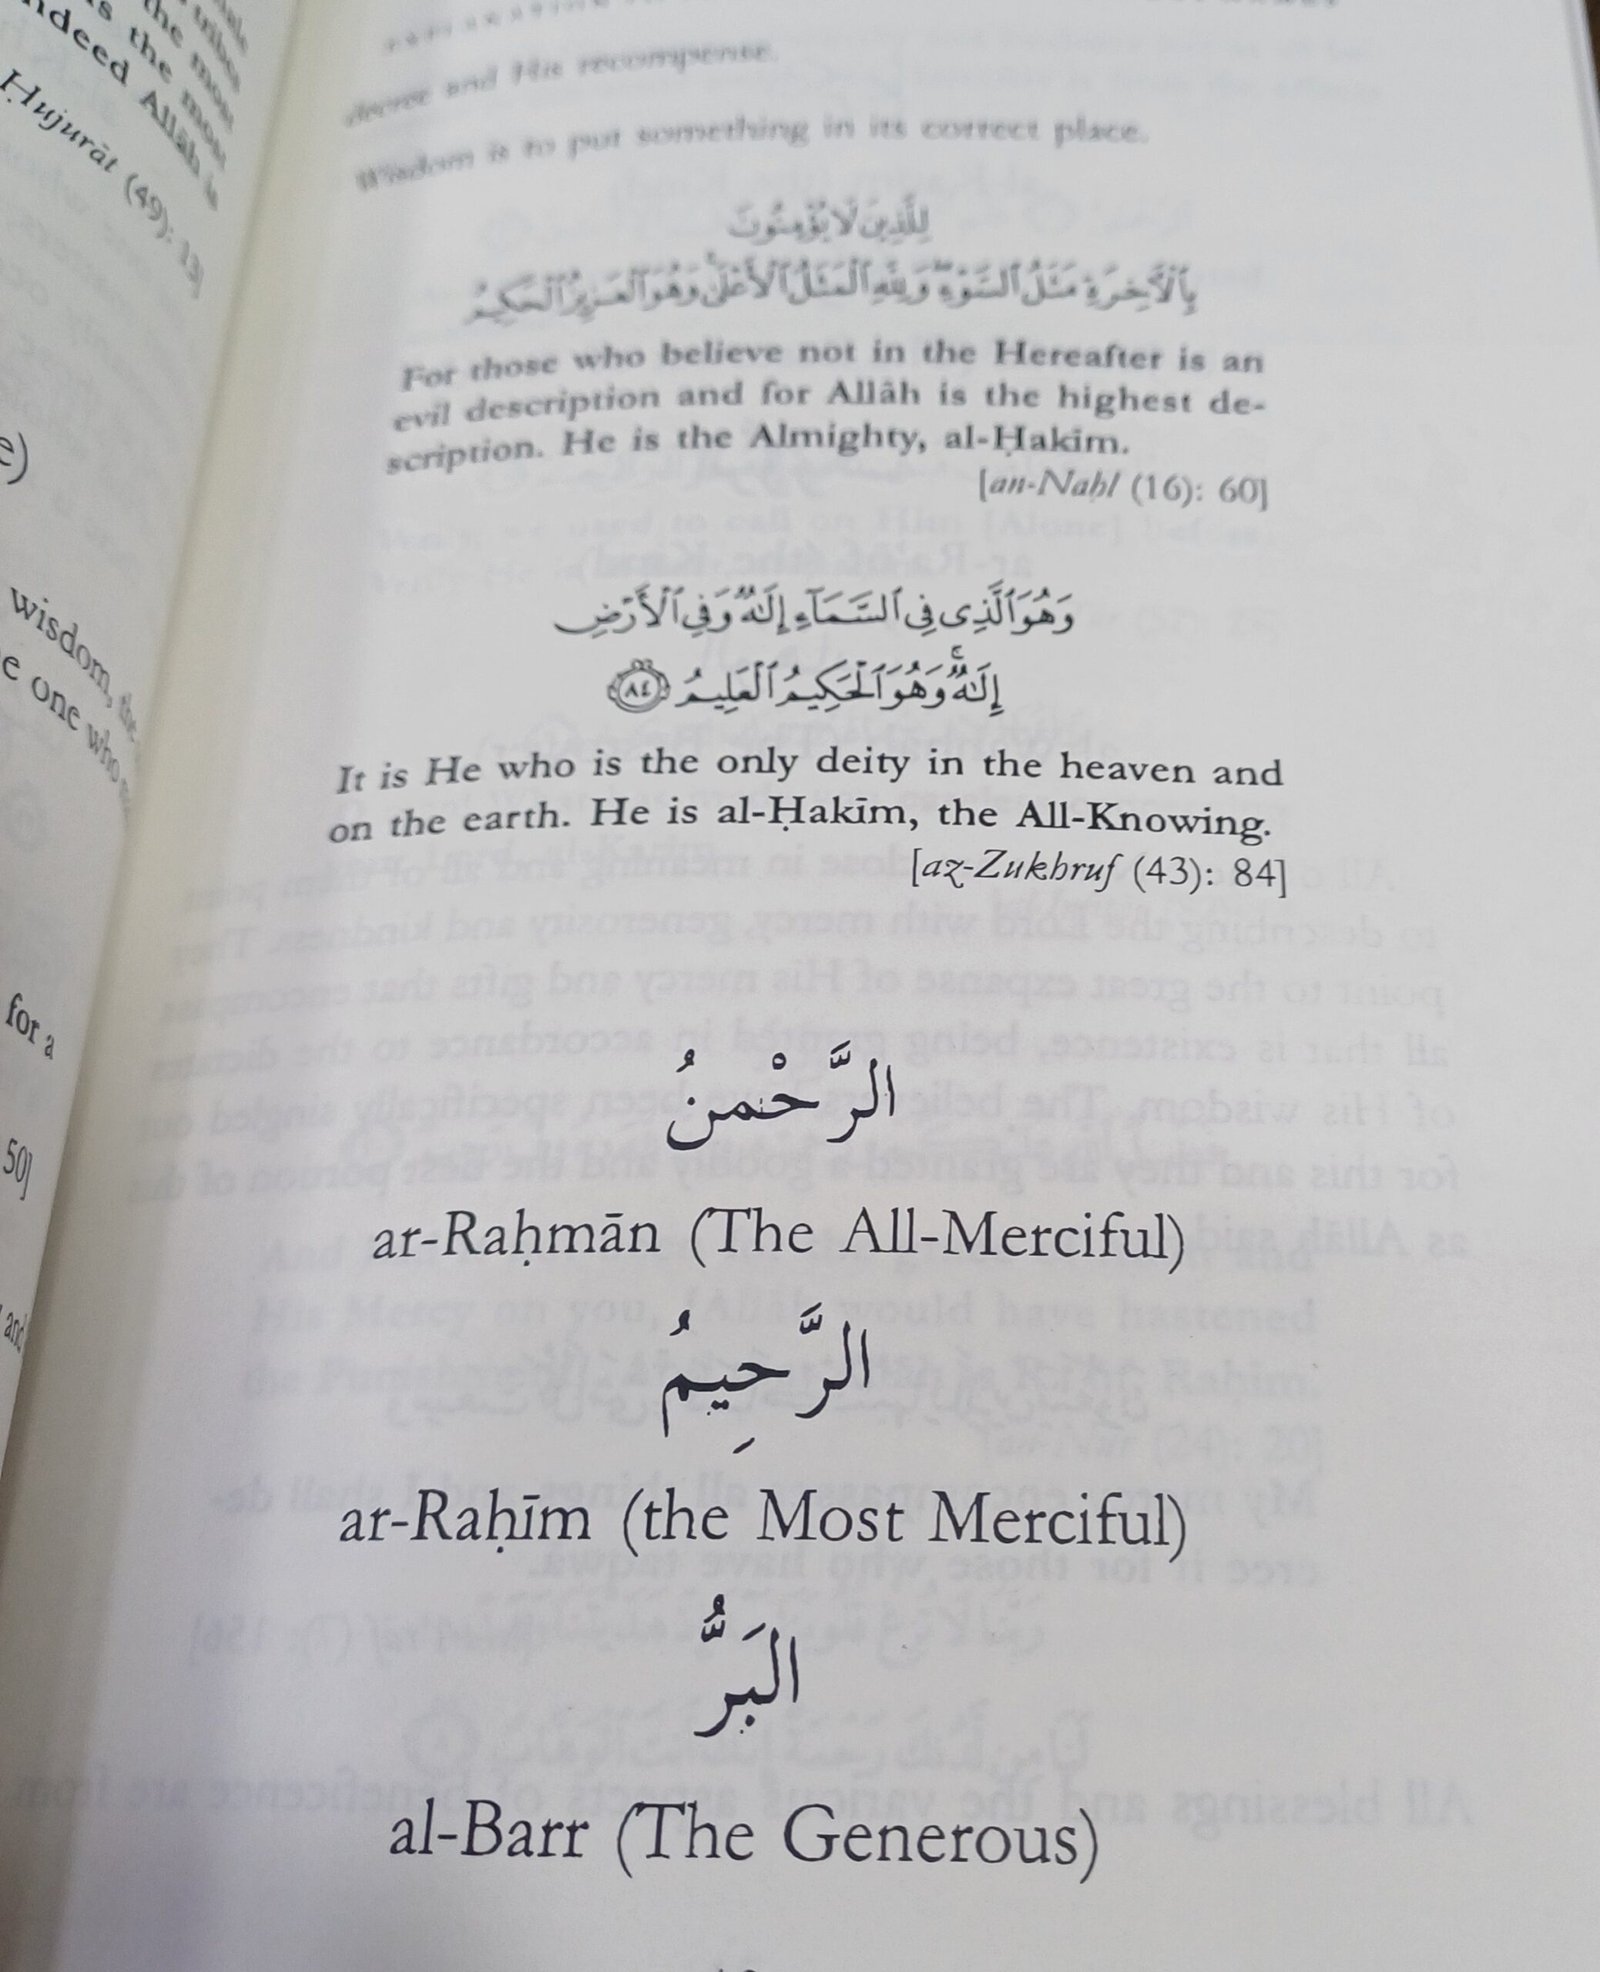 decree and His recompense.
Wisdom is to put something in its correct place.
لِلَّذِينَ لَا يُؤْمِنُونَ
بِٱلْأَخِرَةِ مَثَلُ ٱلسَّوْءِ ۖ وَلِلَّهِ ٱلْمَثَلُ ٱلْأَعْلَىٰ ۚ وَهُوَ ٱلْعَزِيزُ ٱلْحَكِيمُ
For those who believe not in the Hereafter is an
evil description and for Allāh is the highest de-
scription. He is the Almighty, al-Ḥakīm.
[an-Naḥl (16): 60]
وَهُوَ ٱلَّذِى فِى ٱلسَّمَآءِ إِلَٰهٌ وَفِى ٱلْأَرْضِ
إِلَٰهٌ ۚ وَهُوَ ٱلْحَكِيمُ ٱلْعَلِيمُ ٨٤
It is He who is the only deity in the heaven and
on the earth. He is al-Ḥakīm, the All-Knowing.
[az-Zukhruf (43): 84]
الرَّحْمنُ
ar-Raḥmān (The All-Merciful)
الرَّحِيمُ
ar-Raḥīm (the Most Merciful)
البَرُّ
al-Barr (The Generous)
tribes
the most
s the most
ndeed Allāh is
Ḥujurāt (49): 13]
e)
wisdom, the
e one who
for a
50]
and